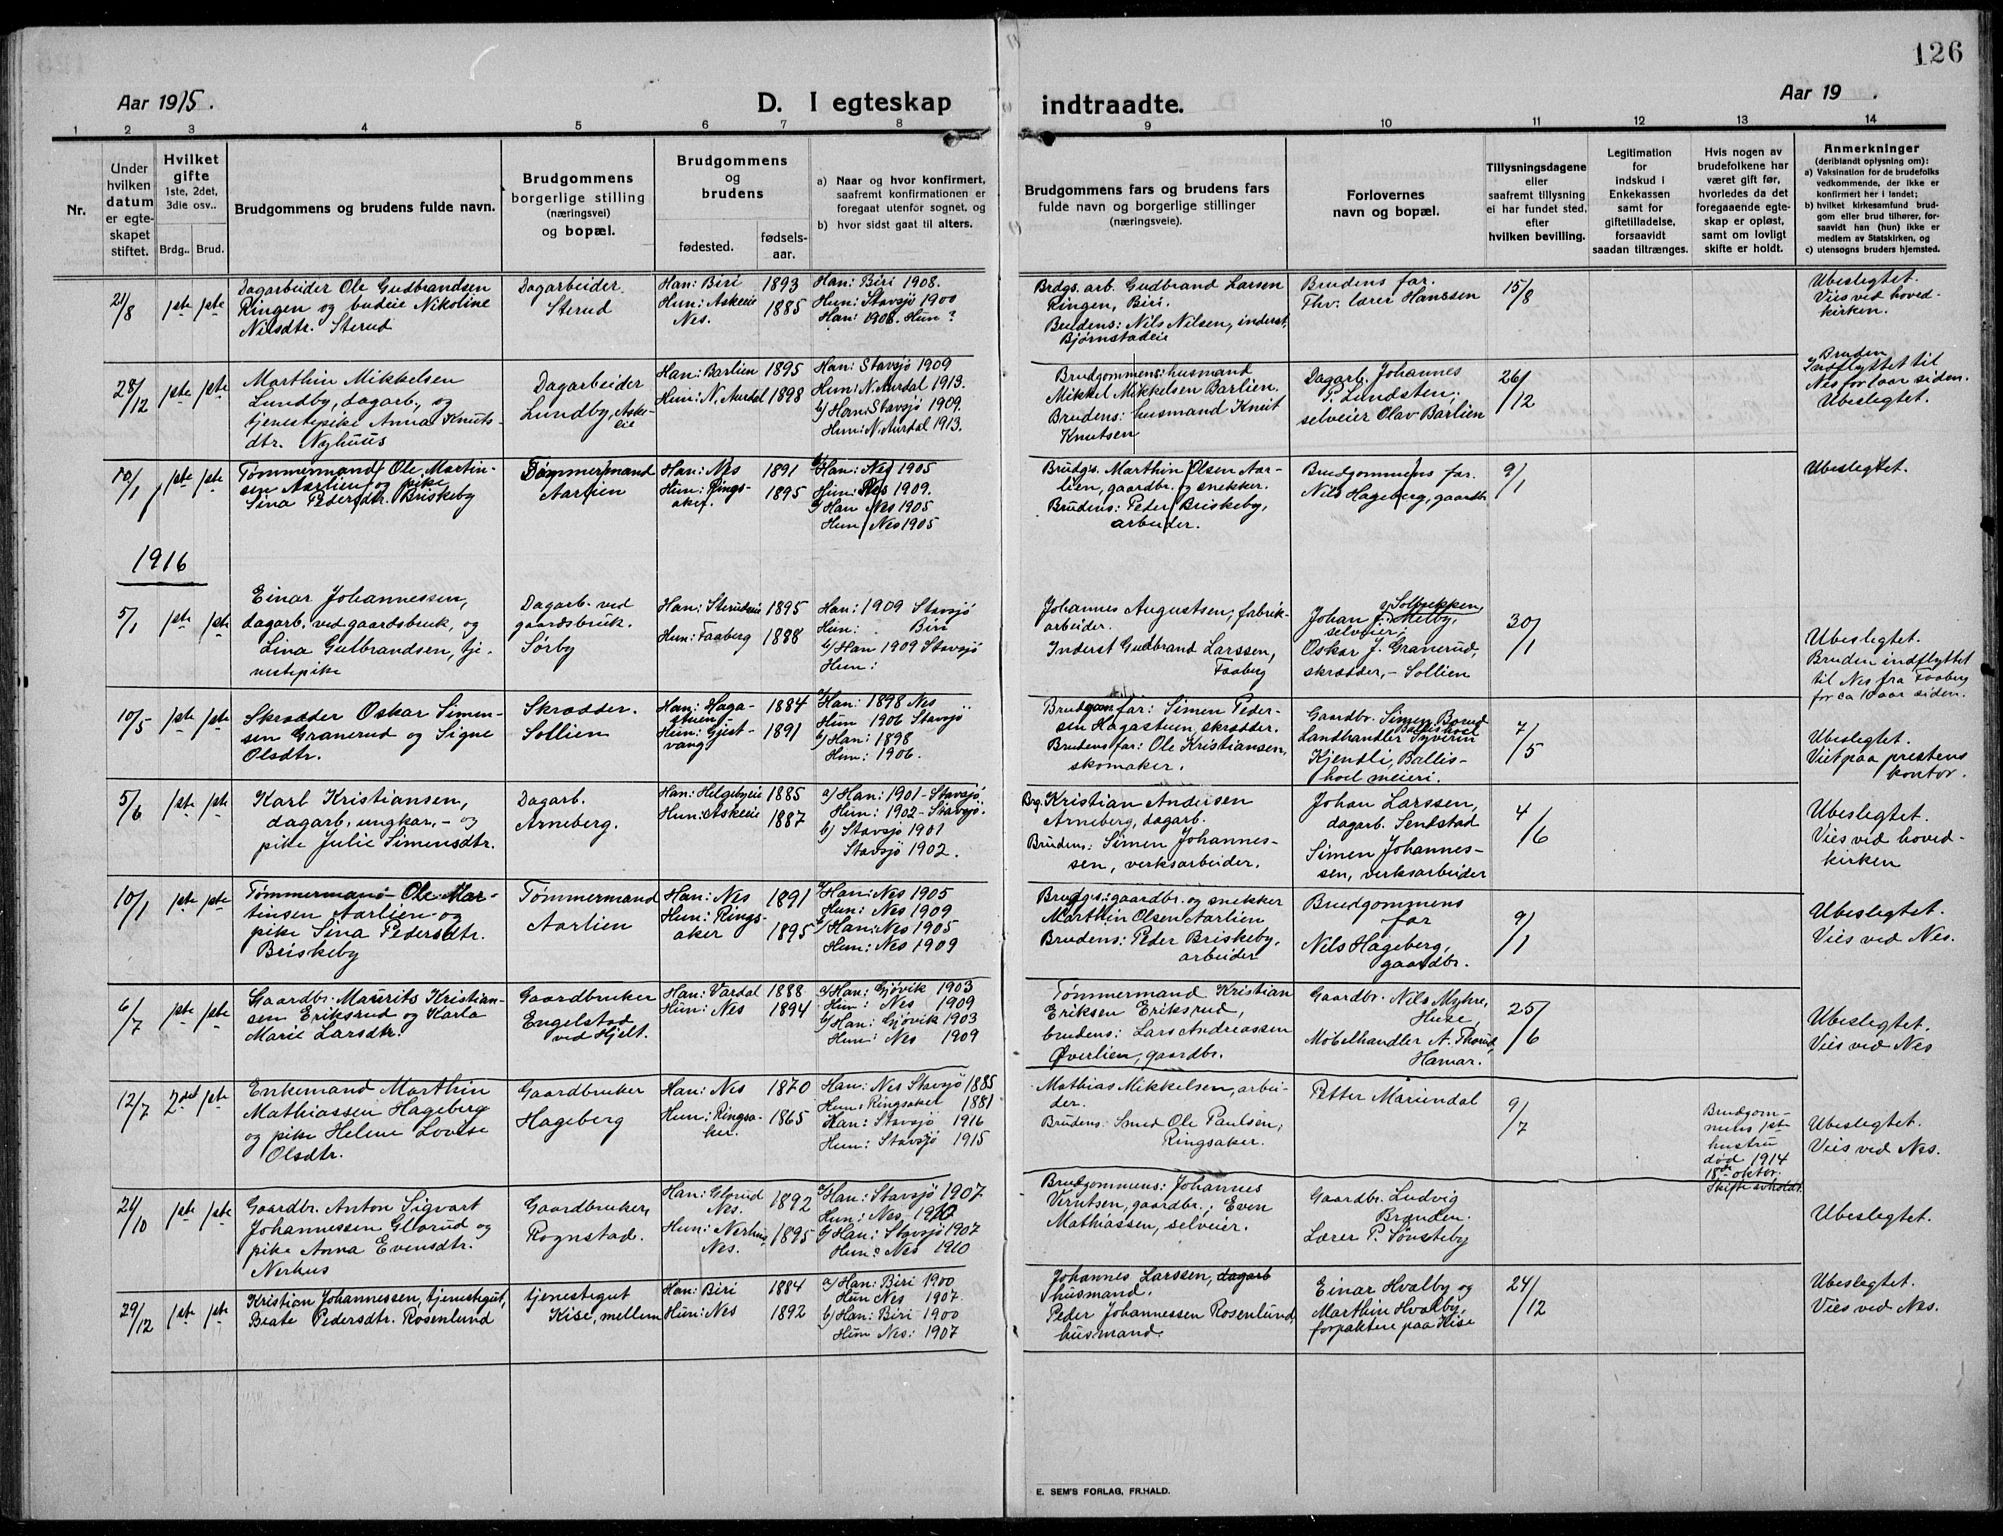 126
Aar 1915.
D. I egteskap indtraadte.
Aar 19 .
1 2 3 4 5 6 7 8 9 10 11 12 13 14
Nr.
Under hvilken datum er egteskapet stiftet.
Hvilket gifte
1ste, 2det, 3die osv..
Brdg.. Brud.
Brudgommens og brudens fulde navn.
Brudgommens borgerlige stilling (næringsvei) og bopæl.
Brudgommens og brudens
fødested. fødselsaar.
a) Naar og hvor konfirmert, saafremt konfirmationen er foregaat utenfor sognet, og
b) hvor sidst gaat til alters.
Brudgommens fars og brudens fars fulde navn og borgerlige stillinger (næringsveie).
Forlovernes navn og bopæl.
Tillysningsdagene eller saafremt tillysning ei har fundet sted, efter hvilken bevilling.
Legitimation for indskud i Enkekassen samt for giftetilladelse, forsaavidt saadan tiltrænges.
Hvis nogen av brudefolkene har været gift før, hvorledes da det foregaaende egteskap er opløst, samt om lovligt skifte er holdt.
Anmerkninger (deriblandt oplysning om): a) Vaksination for de brudefolks vedkommende, der ikke er konfirmert her i landet; b) hvilket kirkesamfund brudgom eller brud tilhører, forsaavidt han (hun) ikke er medlem av Statskirken, og c) utensogns bruders hjemsted.
21/8 1ste 1ste
Dagarbeider Ole Gudbrandsen
Ringen og budeie Nikoline
Nilsdtr. Sterud
Dagarbeider.
Sterud
Han: Biri 1893
Hun: Askeie 1885
Nes.
Han: Biri 1908.
Hun: Stavsjø 1900
Han: 1908. Hun ?
Brdgs. arb. Gudbrand Larsen
Ringen, Biri.
Brudens: Nils Nilsen, inderst,
Bjørnstadeie
Brudens far.
Thv. lærer Hanssen
15/8
Ubeslegtet.
Vies ved hoved-
kirken.
28/12 1ste 1ste
Marthin Mikkelsen
Lundby, dagarb., og
tjenestepike Anna Knuts-
dtr. Nyhuus
Dagarbeider
Lundby, Aske-
eie
Han: Barlien 1895
Hun: N. Aurdal 1898
Han: Stavsjø 1909
Hun: N. Aurdal 1913.
b/ Han: Stavsjø 1909.
Hun: N. Aurdal 1913.
Brudgommens: husmand
Mikkel Mikkelsen Barlien.
Brudens: husmand Knut
Knutsen
Dagarb. Johannes
P. Lundsten;
selveier Olav Barlien
26/12
Bruden
indflyttet til
Nes for 1 aar siden.
Ubeslegtet.
10/1 1ste 1ste
Tømmermand Ole Martin-
sen Aarlien og pike
Sina Pedersdtr. Briskeby
Tømmermand
Aarlien
Han: Nes 1891
Hun: Rings-
aker. 1895
a/ Han: Nes 1905
Hun: Nes 1909.
b/ Han Nes 1905
Hun Nes 1905
Brudgs. Marthin Olsen Aar-
lien, gaardbr. og snekker.
Brudens: Peder Briskeby,
arbeider.
Brudgommens far.
Nils Hageberg, gaardbr
9/1
Ubeslegtet.
1916
5/1 1ste 1ste
Einar Johannessen,
dagarb. ved gaardsbruk, og
Lina Gulbrandsen, tje-
nestepike
Dagarb. ved
gaardsbruk.
Sørby
Han: Sterudeie 1895
Hun: Faaberg 1888
Han: 1909 Stavsjø
Hun: Biri
b/ Han 1909 Stavsjø
Hun:
Johannes Augustsen, fabrik-
arbeider.
Inderst Gudbrand Larssen,
Faaberg
Solbakken,
Johan J. Melby,
selveier,
Oskar J. Granerud,
skrædder, - Sollien
30/1
Ubeslegtet.
Bruden indflyttet
til Nes fra Faaberg
for ca 10 aar siden.
10/5 1ste 1ste
Skrædder Oskar Simen-
sen Granerud og Signe
Olsdtr.
Skrædder.
Sollien
Han: Haga-
stuen - 1884
Hun: Gjest-
vang 1891
a/ Han: 1898 Nes
Hun 1906 Stavsjø
b/ Han: 1898
Hun: 1906.
Brudgom. far: Simen Peder-
sen Hagastuen skrædder.
Brudens far: Ole Kristiansen,
skomaker.
Gaardbr. Simen Borud
Ballishoel
Landhandler Syverin
Kjendli, Ballis-
hoel meieri.
7/5
Ubeslegtet.
Viet paa prestens
kontor.
5/6 1ste 1ste
Karl Kristiansen,
dagarb. ungkar, - og
pike Julie Simensdtr.
Dagarb.
Arneberg.
Han: Helgebyeie 1885
Hun: Askeie 1887
a/ Han: 1901 - Stavsjø
Hun: 1902 - Stavsjø.
b/ Stavsjø 1901
Stavsjø 1902.
Brg. Kristian Andersen
Arneberg, dagarb.
Brudens: Simen Johannes-
sen, verksarbeider.
Johan Larssen,
dagarb. Sendstad
Simen Johannes-
sen, verksarbeider
4/6
Ubeslegtet.
Vies ved hoved-
kirken
10/1 1ste 1ste
Tømmermand Ole Mar-
tinsen Aarlien og
pike Sina Pedersdtr.
Briskeby
Tømmermand
Aarlien
Han: Nes 1891
Hun: Rings-
aker 1895
a/ Han: Nes 1905
Hun: Nes 1909
b/ Han: Nes 1905
Hun: Nes 1909
Brudgs: gaardbr. og snekker
Marthin Olsen Aarlien
Brudens: Peder Briskeby,
arbeider
Brudgommens
far
Nels Hageberg,
gaardbr.
9/1
Ubeslegtet.
Vies ved Nes.
6/7 1ste 1ste
Gaardbr. Maurits Kristian-
sen Eriksrud og Karla
Marie Larsdtr.
Gaardbruker
Engelstad
ved Hjelt.
Han: Vardal 1888
Hun: Nes 1894
a/ Han: Gjøvik 1903
Hun: Nes 1909
b/ Han: Gjøvik 1903
Hun: Nes 1909
Tømmermand Kristian
Eriksen Eriksrud,
brudens: Lars Andreassen
Øverlien, gaardbr.
Gaardbr. Nils Myhre,
Huse,
Møbelhandler A. Thorud,
Hamar.
25/6
Ubeslegtet.
Vies ved Nes
12/7 2det 1ste
Enkemand Marthin
Mathiassen Hageberg
og pike Helene Lovise
Olsdtr.
Gaardbruker
Hageberg
Han: Nes 1870
Hun: Ringsa-
ker. 1865
Han: Nes Stavsjø 1885
Hun: Ringsaker 1881
Han: Stavsjø 1916
Hun: Stavsjø 1915
Mathias Mikkelsen, arbei-
der.
Brudens: Smed Ole Paulsen,
Ringsaker.
Petter Mariendal
9/7
Brudgom-
mens 1ste
hustru
død 1914
18de oktbr.
Skifte avholdt.
Ubeslegtet.
Vies ved Nes.
21/10 1ste 1ste
Gaardbr. Anton Sigvart
Johannessen Glorud og
pike Anna Evensdtr.
Nerhus
Gaardbruker,
Rognstad.
Han: Glorud
Nes. 1892
Hun: Nerhus,
Nes. 1895
a/ Han: Stavsjø 1907
Hun: Nes 1910
b/ Han: Stavsjø 1907
Hun: Nes 1910
Brudgommens: Johannes
Verutsen, gaardbr.; Even
Mathiassen, selveier.
Gaardbr. Ludvig
Brænden.
Lærer P. Sønsteby
Ubeslegtet.
29/12 1ste 1ste
Kristian Johannessen, tjenestegut,
Beate Pedersdtr. Rosenlund
tjenestegut
Kise, mellem
Han: Biri 1884
Hun: Nes 1892
a/ Han: Biri 1900
Hun Nes 1907.
b/ Han: Biri 1900
Hun Nes: 1907
Johannes Larssen, dagarb
husmand.
Peder Johannessen Rosenlund,
husmand.
Einar Hvalby og
Marthin Hvalby,
forpaktere paa Kise
24/12
Ubeslegtet.
Vies ved Nes.
E. SEM'S FORLAG, FR.HALD.